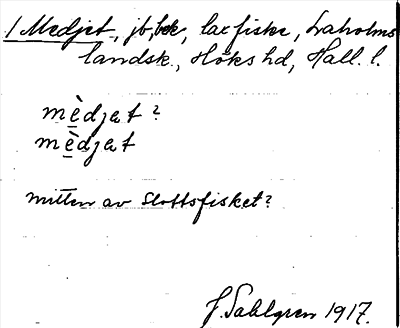 / Medjet, jb, bek, laxfiske, Laholms
landsk., Höks hd, Hall. l.
mèdjət ?
mèdjət
mitten av Slottsfisket?
J. Sahlgren 1917.